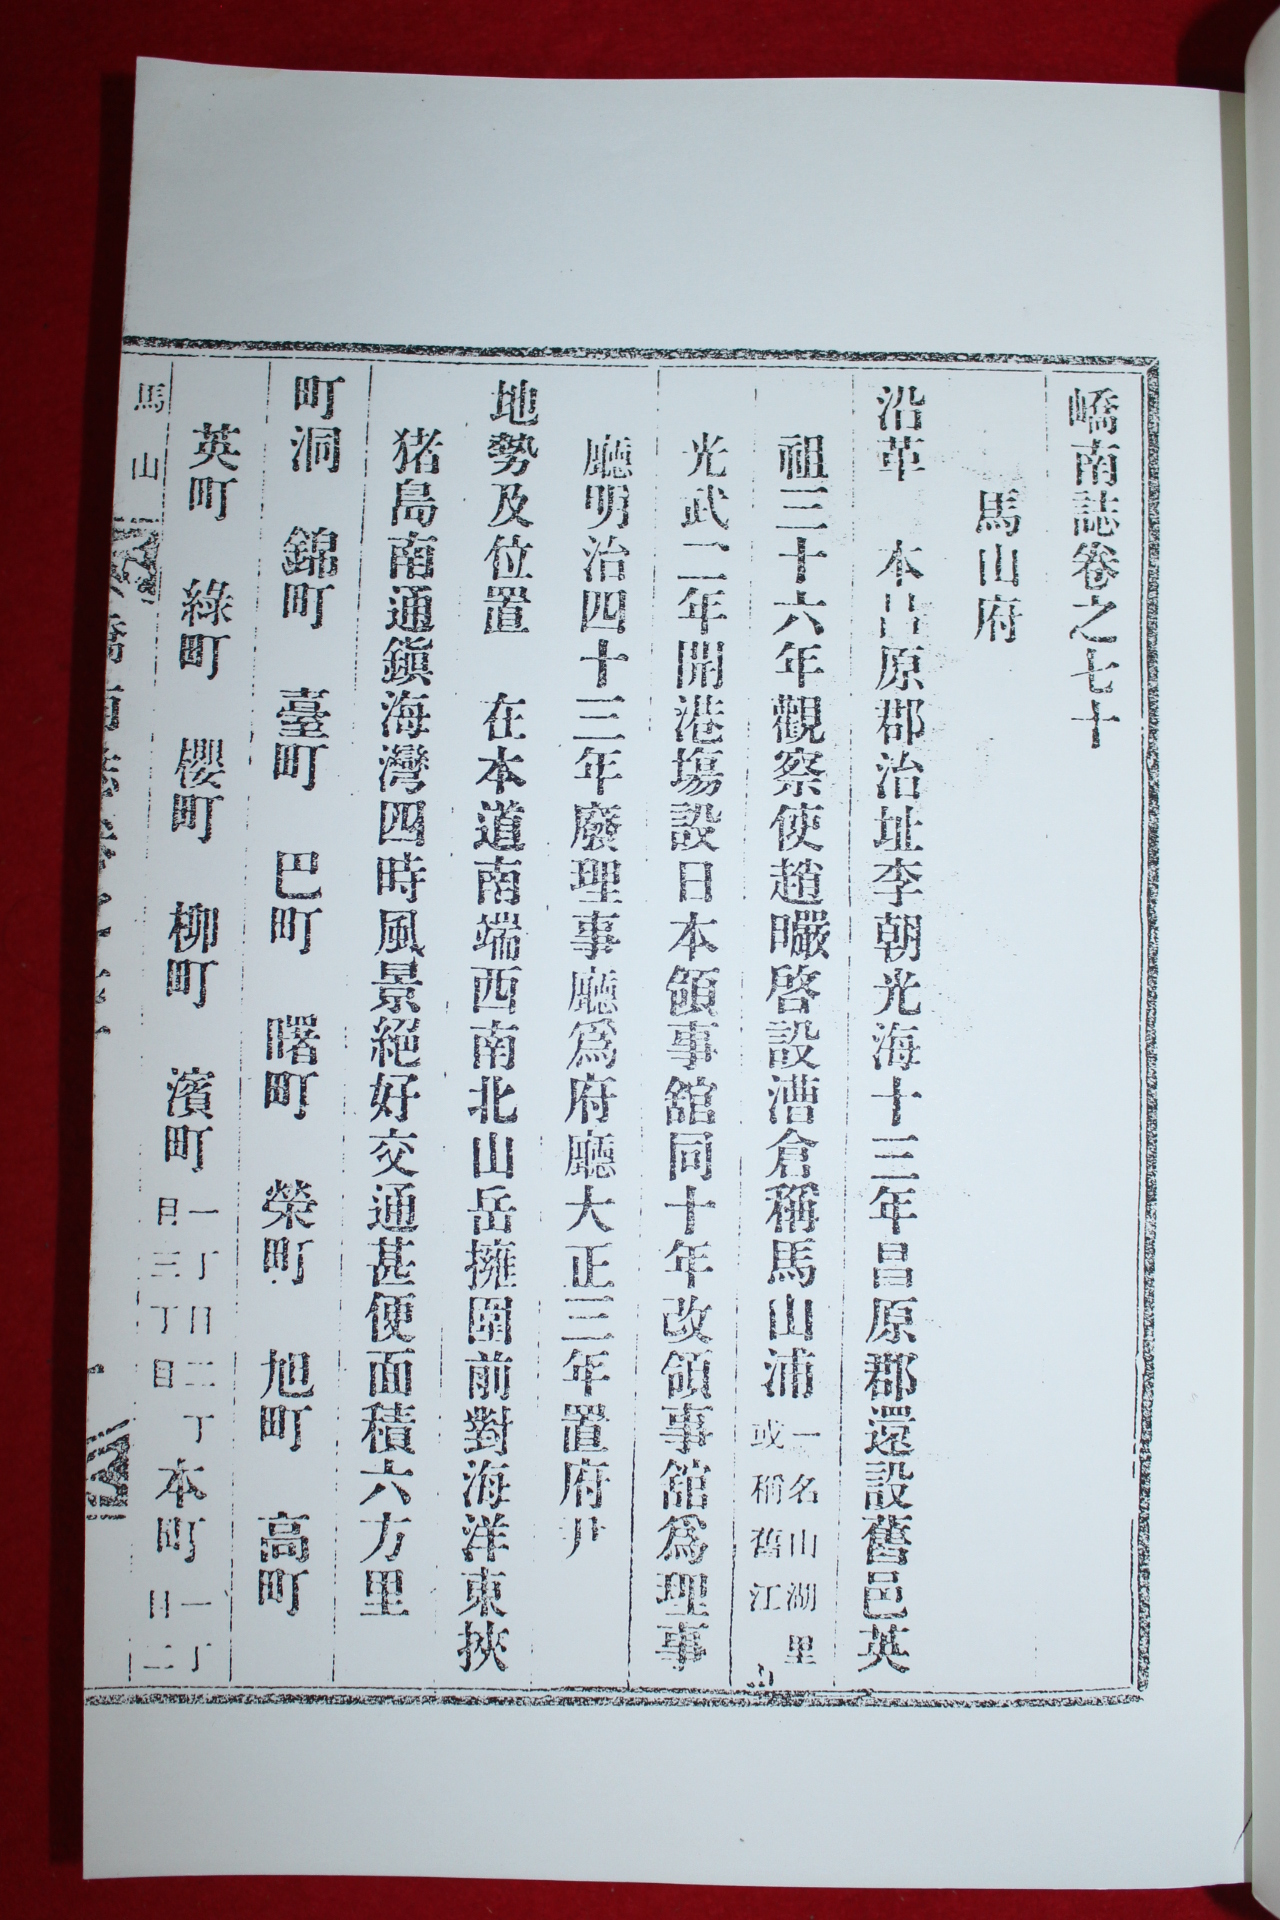 嶠南誌卷之七十
馬山府
沿革 本昌原郡治址李朝光海十三年昌原郡還設舊邑英
祖三十六年觀察使趙曮啓設漕倉稱馬山浦 一名山湖里 或稱舊江
光武二年開港場設日本領事舘同十年改領事舘爲理事
廳明治四十三年廢理事廳爲府廳大正三年置府尹
地勢及位置 在本道南端西南北山岳擁圍前對海洋東挾
猪島南通鎭海灣四時風景絕好交通甚便面積六方里
町洞 錦町 臺町 巴町 曙町 榮町 旭町 高町
英町 綠町 櫻町 柳町 濱町 一丁目二丁 目三丁目 本町 一丁 目二
馬山